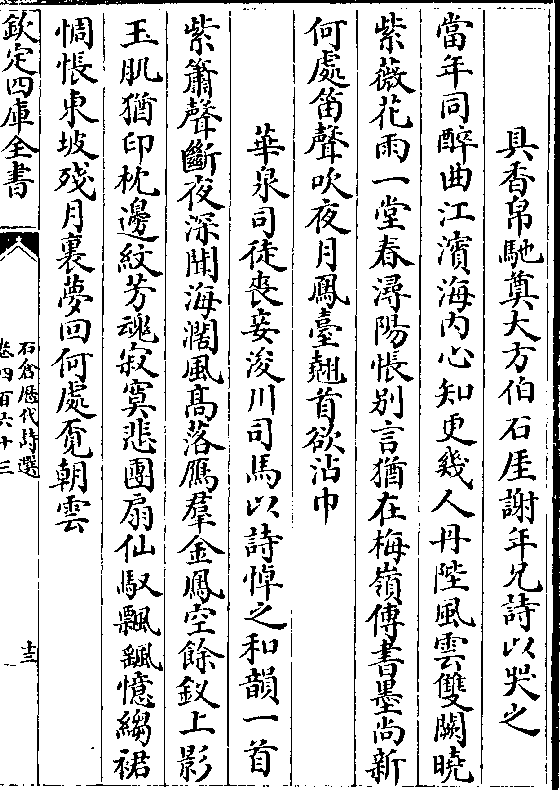 具香帛馳奠大方伯石厓謝年兄詩以哭之
當年同醉曲江濱海内心知更幾人丹陛風雲雙闕曉
紫薇花雨一堂春潯陽悵别言猶在梅嶺傳書墨尚新
何處笛聲吹夜月鳳臺翹首欲沾巾
華泉司徒喪妾浚川司馬以詩悼之和韻一首
紫簫聲斷夜深聞海濶風髙落鴈羣金鳳空餘釵上影
玉肌猶印枕邊紋芳魂寂寞悲團扇仙馭飄颻憶縐裙
惆悵東坡殘月裏夢回何處覔朝雲
欽定四庫全書
石倉歴代詩選
卷四百六十三
十三